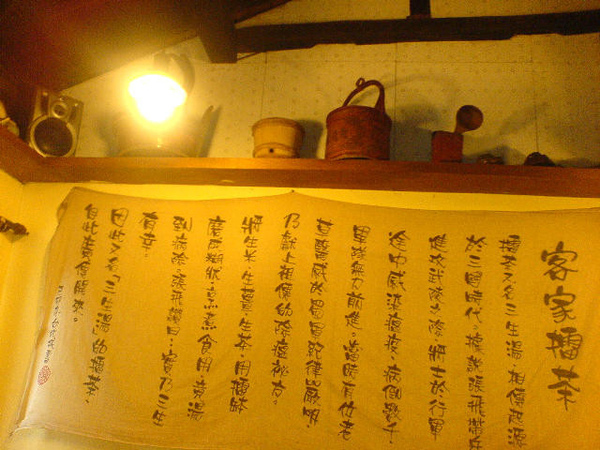 客家擂茶
擂茶又名三生湯，相傳起源
於三國時代。據說張飛帶兵
進攻武陵之際，將士於行軍
途中感染瘟疫，病倒數千，
軍隊無力前進。當時有位老
草醫 於 軍紀律嚴明，
乃獻上祖傳的除瘟秘方。
將生米、生薑、生茶，用擂缽
磨成糊狀，烹煮食用，竟湯
到病除。張飛嘆曰：實乃三生
有幸。
因此又名「三生湯」的擂茶，
自此 開來。